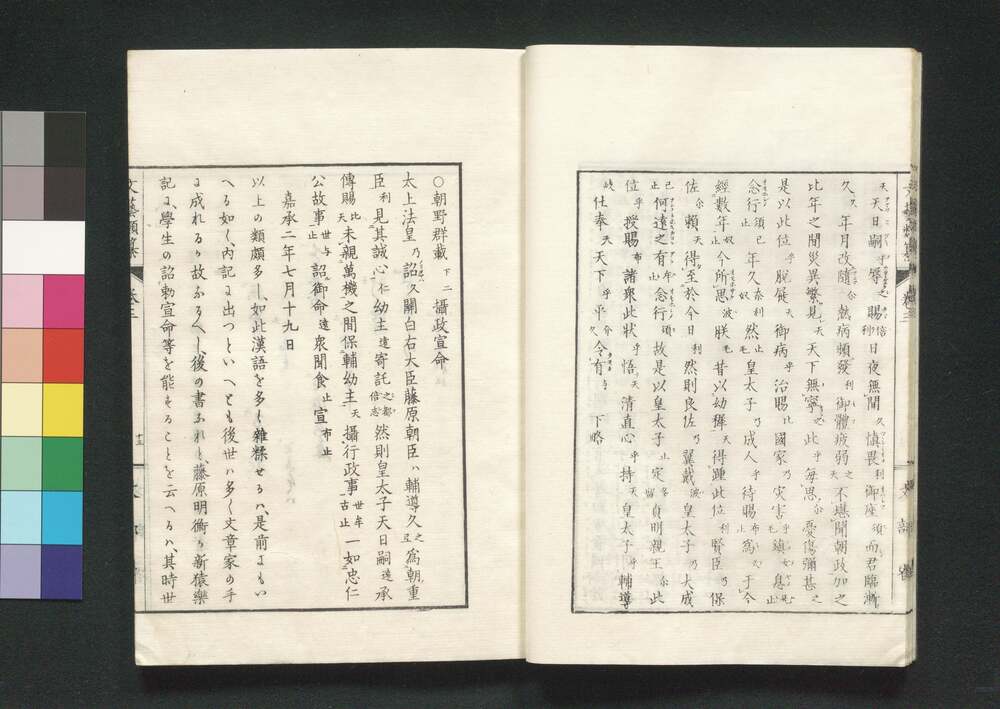 天天日嗣乎辱賜利日夜無間久慎畏利御座須而君臨漸
久年月改隨尓熱病頻發利御體疲弱之天不堪聞朝政加之
比年之間災異繁見天天下無寧之此乎毎思尓憂傷彌甚之
是以此位乎脱屣天御病乎治賜比國家乃灾害毛鎮女息止
念行須已止年久奈利奴然止毛皇太子乃成人乎待賜布止為天于今
經數年奴止今所思波朕毛昔以幼穉天得踵此位利賢臣乃保
佐尓賴天得至於今日利然則良佐乃翼戴波皇太子乃大成
已止何遠之有牟止念行須故是以皇太子止定多留貞明親王尓此
位乎授賜布諸衆此狀乎悟天清直心乎持天皇太子乎輔導
仕奉天天下乎平久令有与下略
○朝野群載下二攝政宣命
太上法皇乃詔久關白右大臣藤原朝臣八輔導久之為朝重
臣利見其誠心仁幼主遠寄託之都倍志然則皇太子天日嗣遠承
傳賜比天未親萬機之間保輔幼主天攝行政事世牟古止一如忠仁
公故事止世与詔御命遠衆聞食止宣布止
嘉承二年七月十九日
以上の類頗多し、如此漢語を多く雜糅せるハ、是前よもい
へる如く、内記に出つといへとも後世ハ多く文章家の手
に成れるり故あるへし、後の書ふれと、藤原明衡り新猿樂
記に、學生の詔勅宣命等を能せることを云へるハ、其時世
文藝類纂
卷三
文部省